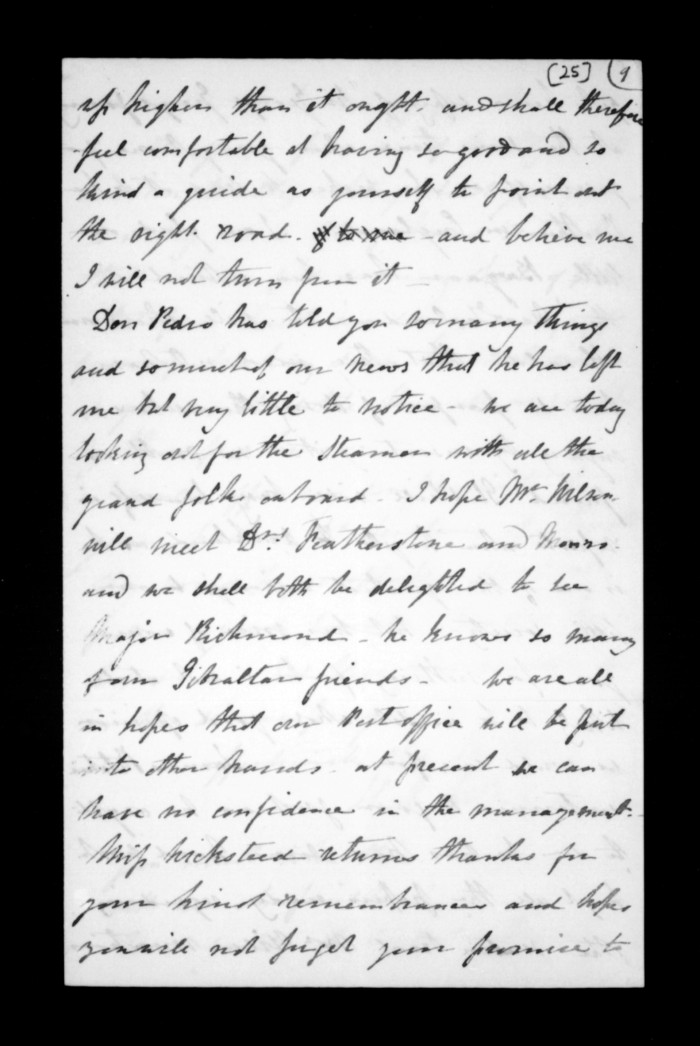 [25] 9
up higher than it ought. and shall therefore
feel comfortable at having so good and so
kind a guide as yourself to point out
the right road. - and believe me
I will not turn from it -
Don Pedro has told you so many things
and so much of our news that he has left
me but very little to notice - we are today
looking out for the Steamer with all the
grand folks onboard. I hope Mr. Wilson
will meet Drs. Featherstone and Monro.
and we shall both be delighted to see
Major Richmond - he knows so many
of our Gibraltar friends - we are all
in hopes that our Post office will be put
into other hands. at present we can
have no confidence in the management.
Miss Wicksteed returns thanks for
your kind remembrances and hopes
you will not forget your promise to